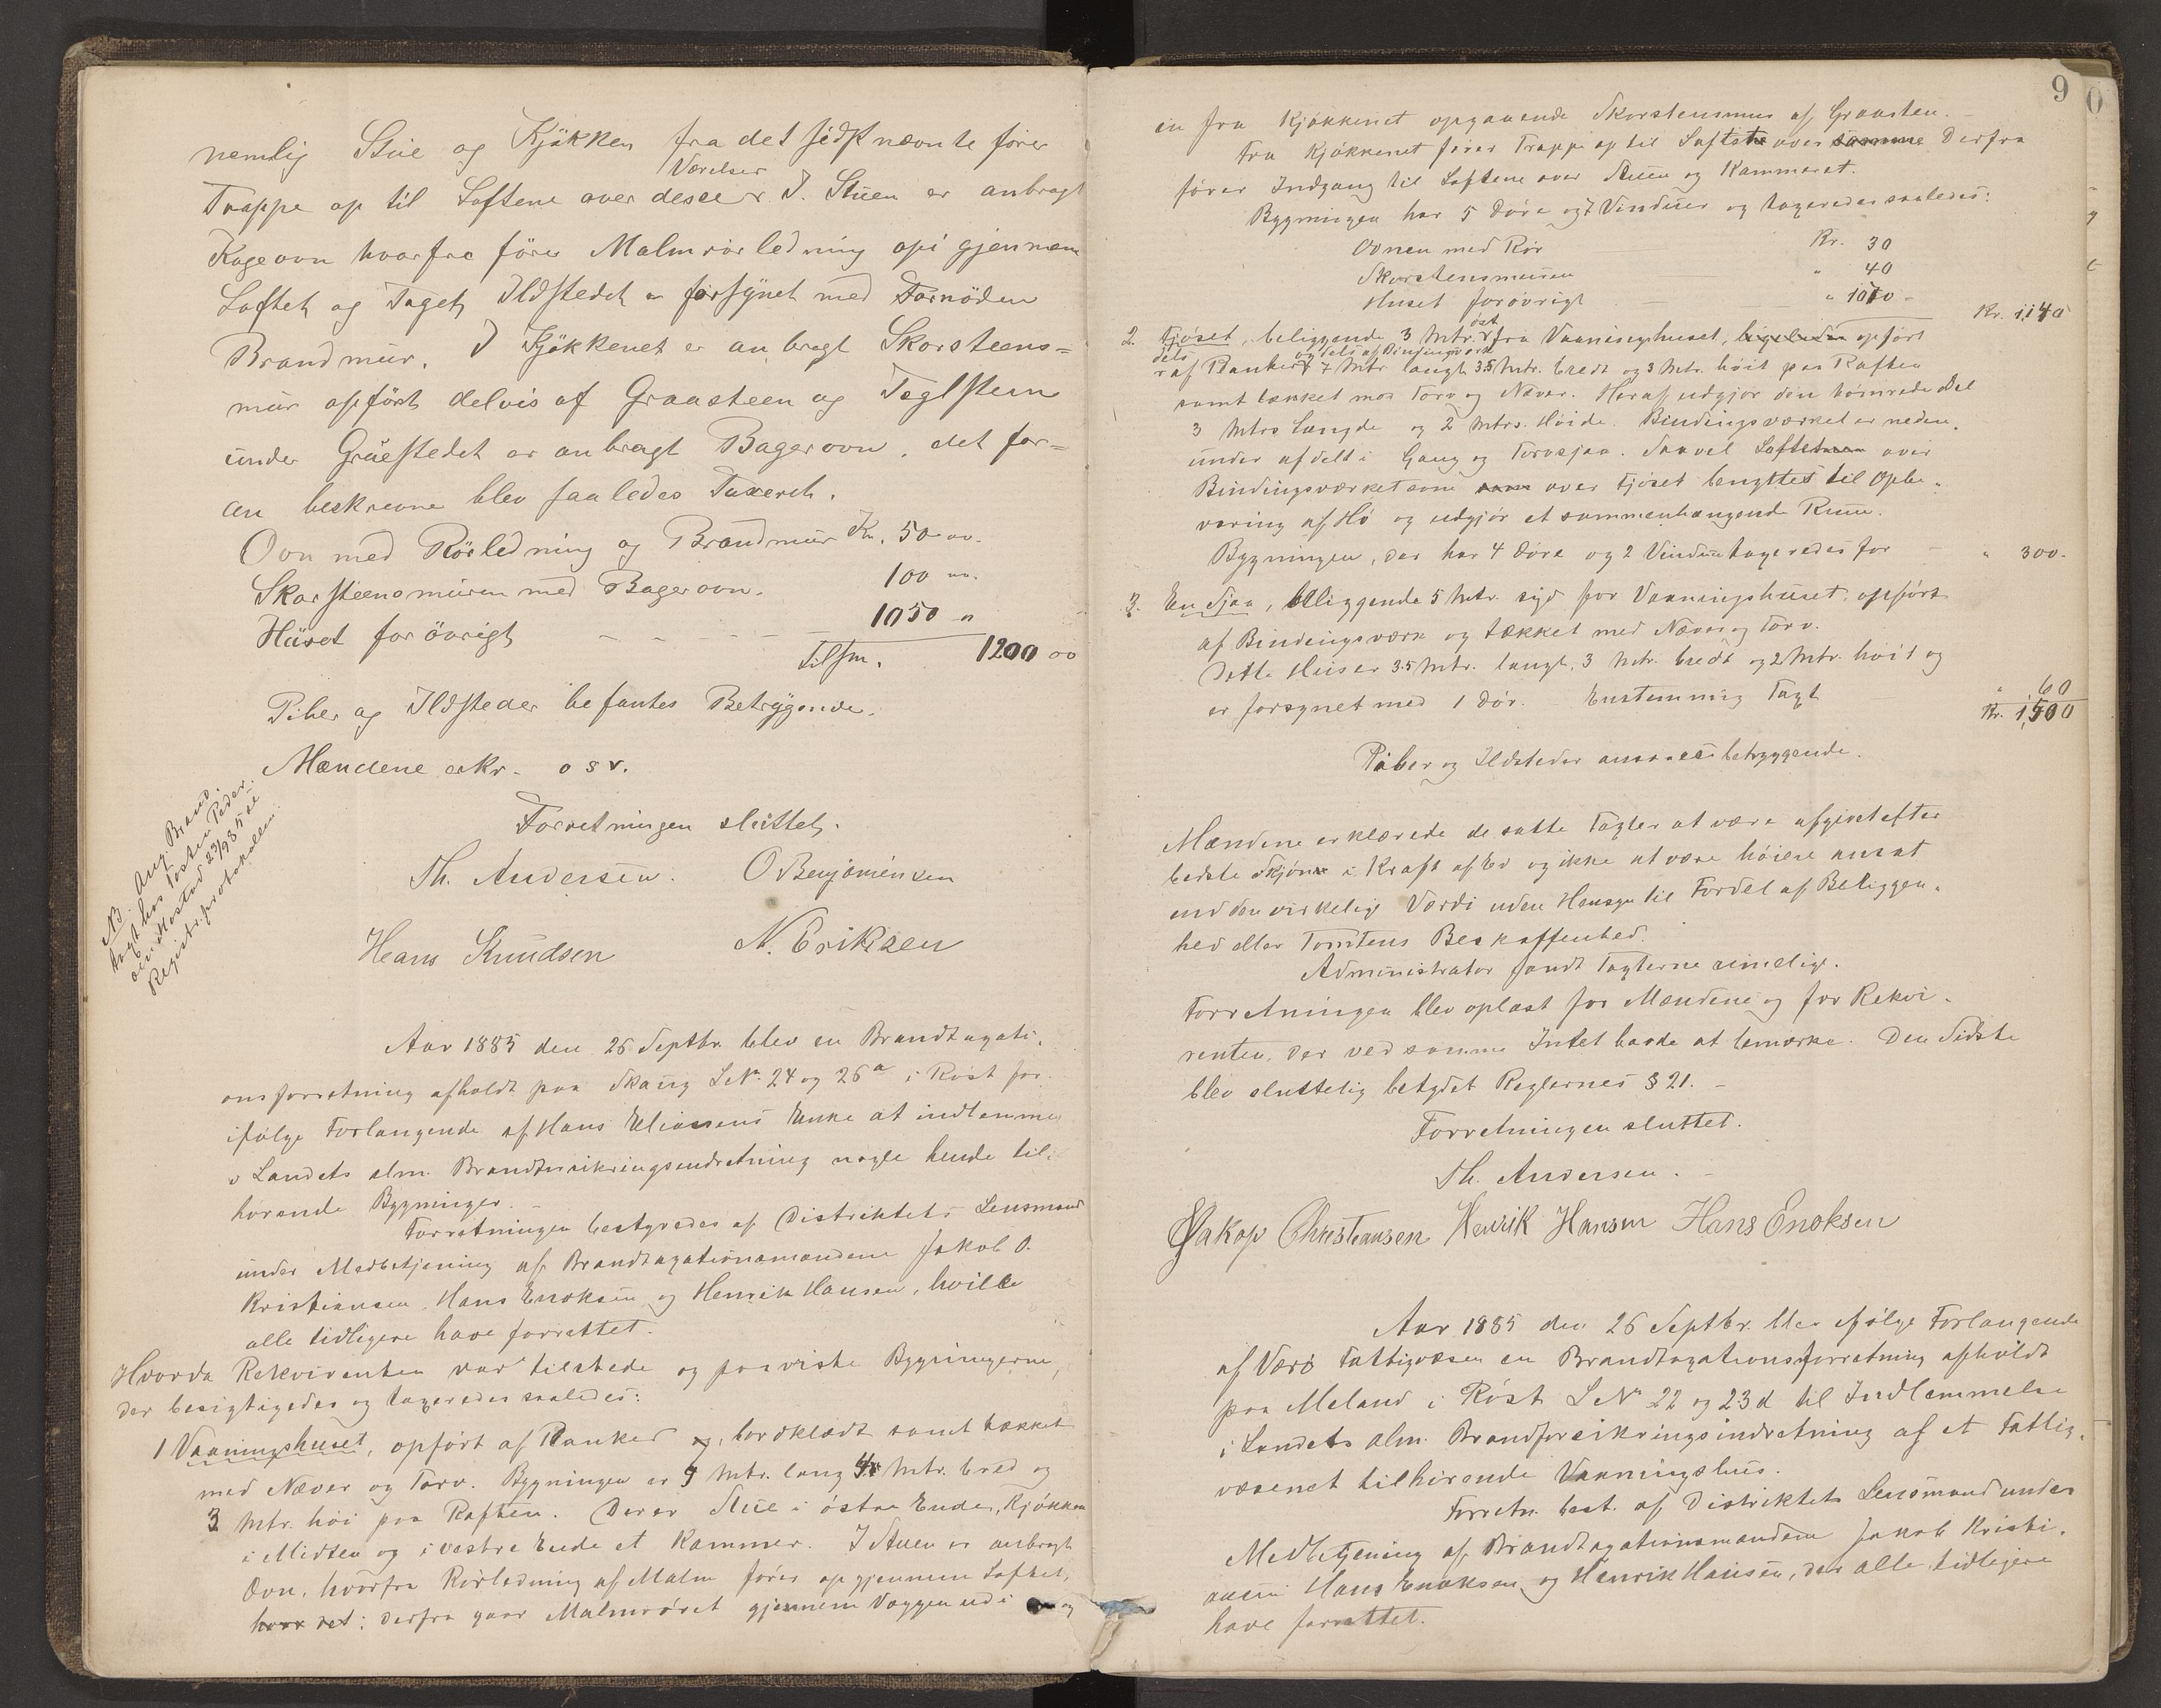 nemlig Stue og Kjøkken fra det sidstnævnte fører
Værelser
Trappe op til Loftene over desse. I. Stuen er anbragt
Kageovn hvorfra fører Malmrørledning op i gjennem
Loftet og Taget, Ildstedet er forsynet med Fornøden
Brandmur. I Kjøkkenet er anbragt Skorsteens=
mur opført delvis af Graasteen og Teglsteen
under Gruestedet er anbragt Bagerovn, det for=
an beskrevne blev saaledes Taxeret.
Ovn med Rørledning og Brandmur Kr. 50 00.
Skorsteensmuren med Bagerovn. 100
Huset for øvrigt - - - - 1050 "
Tilsm. 1200 00
Piber og Ildsteder befantes Betrygende.
Mændene erkr. o s v.
Forretningen sluttet.
Th. Andersen. O Benjaminsen
Hans Knudsen N. Eriksen
NB. Ang. Brand.
taxt hos Tosten Peder.
sen Mostad 23/9 85 se
Registr.protokollen.
Aar 1885 den 26 Septbr. blev en Brandtaxati-
onsforretning afholdt paa Skaug LN. 24 og 26a i Røst for
ifølge Forlangende af Hans Eliassens Enke at indlemme
i Landets alm. Brandforsikringsindretning nogle hende til-
hørende Bygninger. -
Forretningen bestyredes af Distriktets Lensmand
under Medbetjening af Brandtaxationsmændene Jakob O.
Kristiansen, Hans Enoksen og Henrik Hansen, hvilke
alle tidligere have forrettet.
Hvorda Rekvirenten var tilstede og paaviste Bygningerne,
der besigtigedes og taxeredes saaledes:
1 Vaaningshuset, opført af Planker og, bordklædt samt tækket
med Næver og Torv. Bygningen er 9 Mtr. lang 4 Mtr. bred og
3 Mtr. høi paa Raften. Der er Stue i østre Ende, Kjøkken
i Midten og i vestre Ende et Kammer. I Stuen er anbragt
Ovn, hvorfra Rørledning af Malm fører op gjennem Loftet,
hvor det: derfra gaar Malmrøret gjennem Væggen ud i og
9
en fra Kjøkkenet opgaaende Skorstensmur af Graasten. -
Fra Kjøkkenet fører Trappe op til Loftet over samme Derfra
fører Indgang til Loftene over Stuen og Kammeret.
Bygningen har 5 Døre og 7 Vinduer og taxeredes saaledes:
Ovnen med Rør Kr. 30
Skorstensmuren " 40
Huset forøvrigt " 1070 -
Kr. 1,140
øst
2. Fjøset, beliggende 3 Mtr. fra Vaaningshuset, ligeledes opført
dels og dels af Bindingsværk
af Planker 7 Mtr langt 3.5 Mtr. bredt og 3 Mtr. høit paa Raften
samt tækket med Torv og Næver. Heraf udgjør den tømrede Del
3 Mtrs Længde og 2 Mtrs. Høide. Bindingsværket er neden-
under afdelt i Gang og Torvsjaa. Saavel Loftet over
Bindingsværket som over Fjøset benyttes til Opbe-
varing af Hø og udgjør et sammenhængende Rum.
Bygningen, der har 4 Døre og 2 Vinduer taxeredes for - " 300.
3. En Sjaa, beliggende 5 Mtr. syd for Vaaningshuset, opført
af Bindingsværk og tækket med Næver og Torv.
Dette Hus er 3.5 Mtr. langt, 3 Mtr. bredt og 2 Mtr. høit og
er forsynet med 1 Dør. Enstemmig Taxt " 60
Kr. 1,500
Piber og Ildsteder ansaaes betryggende.
Mændene erklærede de satte Taxter at være afgivet efter
bedste Skjøn i Kraft af Ed og ikke at være høiere ansat
end den virkelige Værdi uden Hensyn til Fordel af Beliggen-
hed eller Tomtens Beskaffenhed.
Administrator fandt Taxterne rimelige.
Forretningen blev oplæst for Mændene og for Rekvi-
renten, der ved samme Intet havde at bemærke. Den Sidste
blev sluttelig betydet Reglernes § 21. -
Forretningen sluttet.
Th. Andersen. -
Jakop Christeansen Henrik Hansen Hans Enoksen
Aar 1885 den 26 Septbr. blev ifølge Forlangende
af Værø Fattigvæsen en Brandtaxationsforretning afholdt
paa Meland i Røst LNr 22 og 23d til Indlemmelse
i Landets alm. Brandforsikringsindretning af et Fattig-
væsenet tilhørende Vaaningshus.
Forretn. best. af Distriktets Lensmand under
Medbetjening af Brandtaxationsmændene Jakob Kristi-
ansen Hans Enoksen og Henrik Hansen, der alle tidligere
have forrettet.